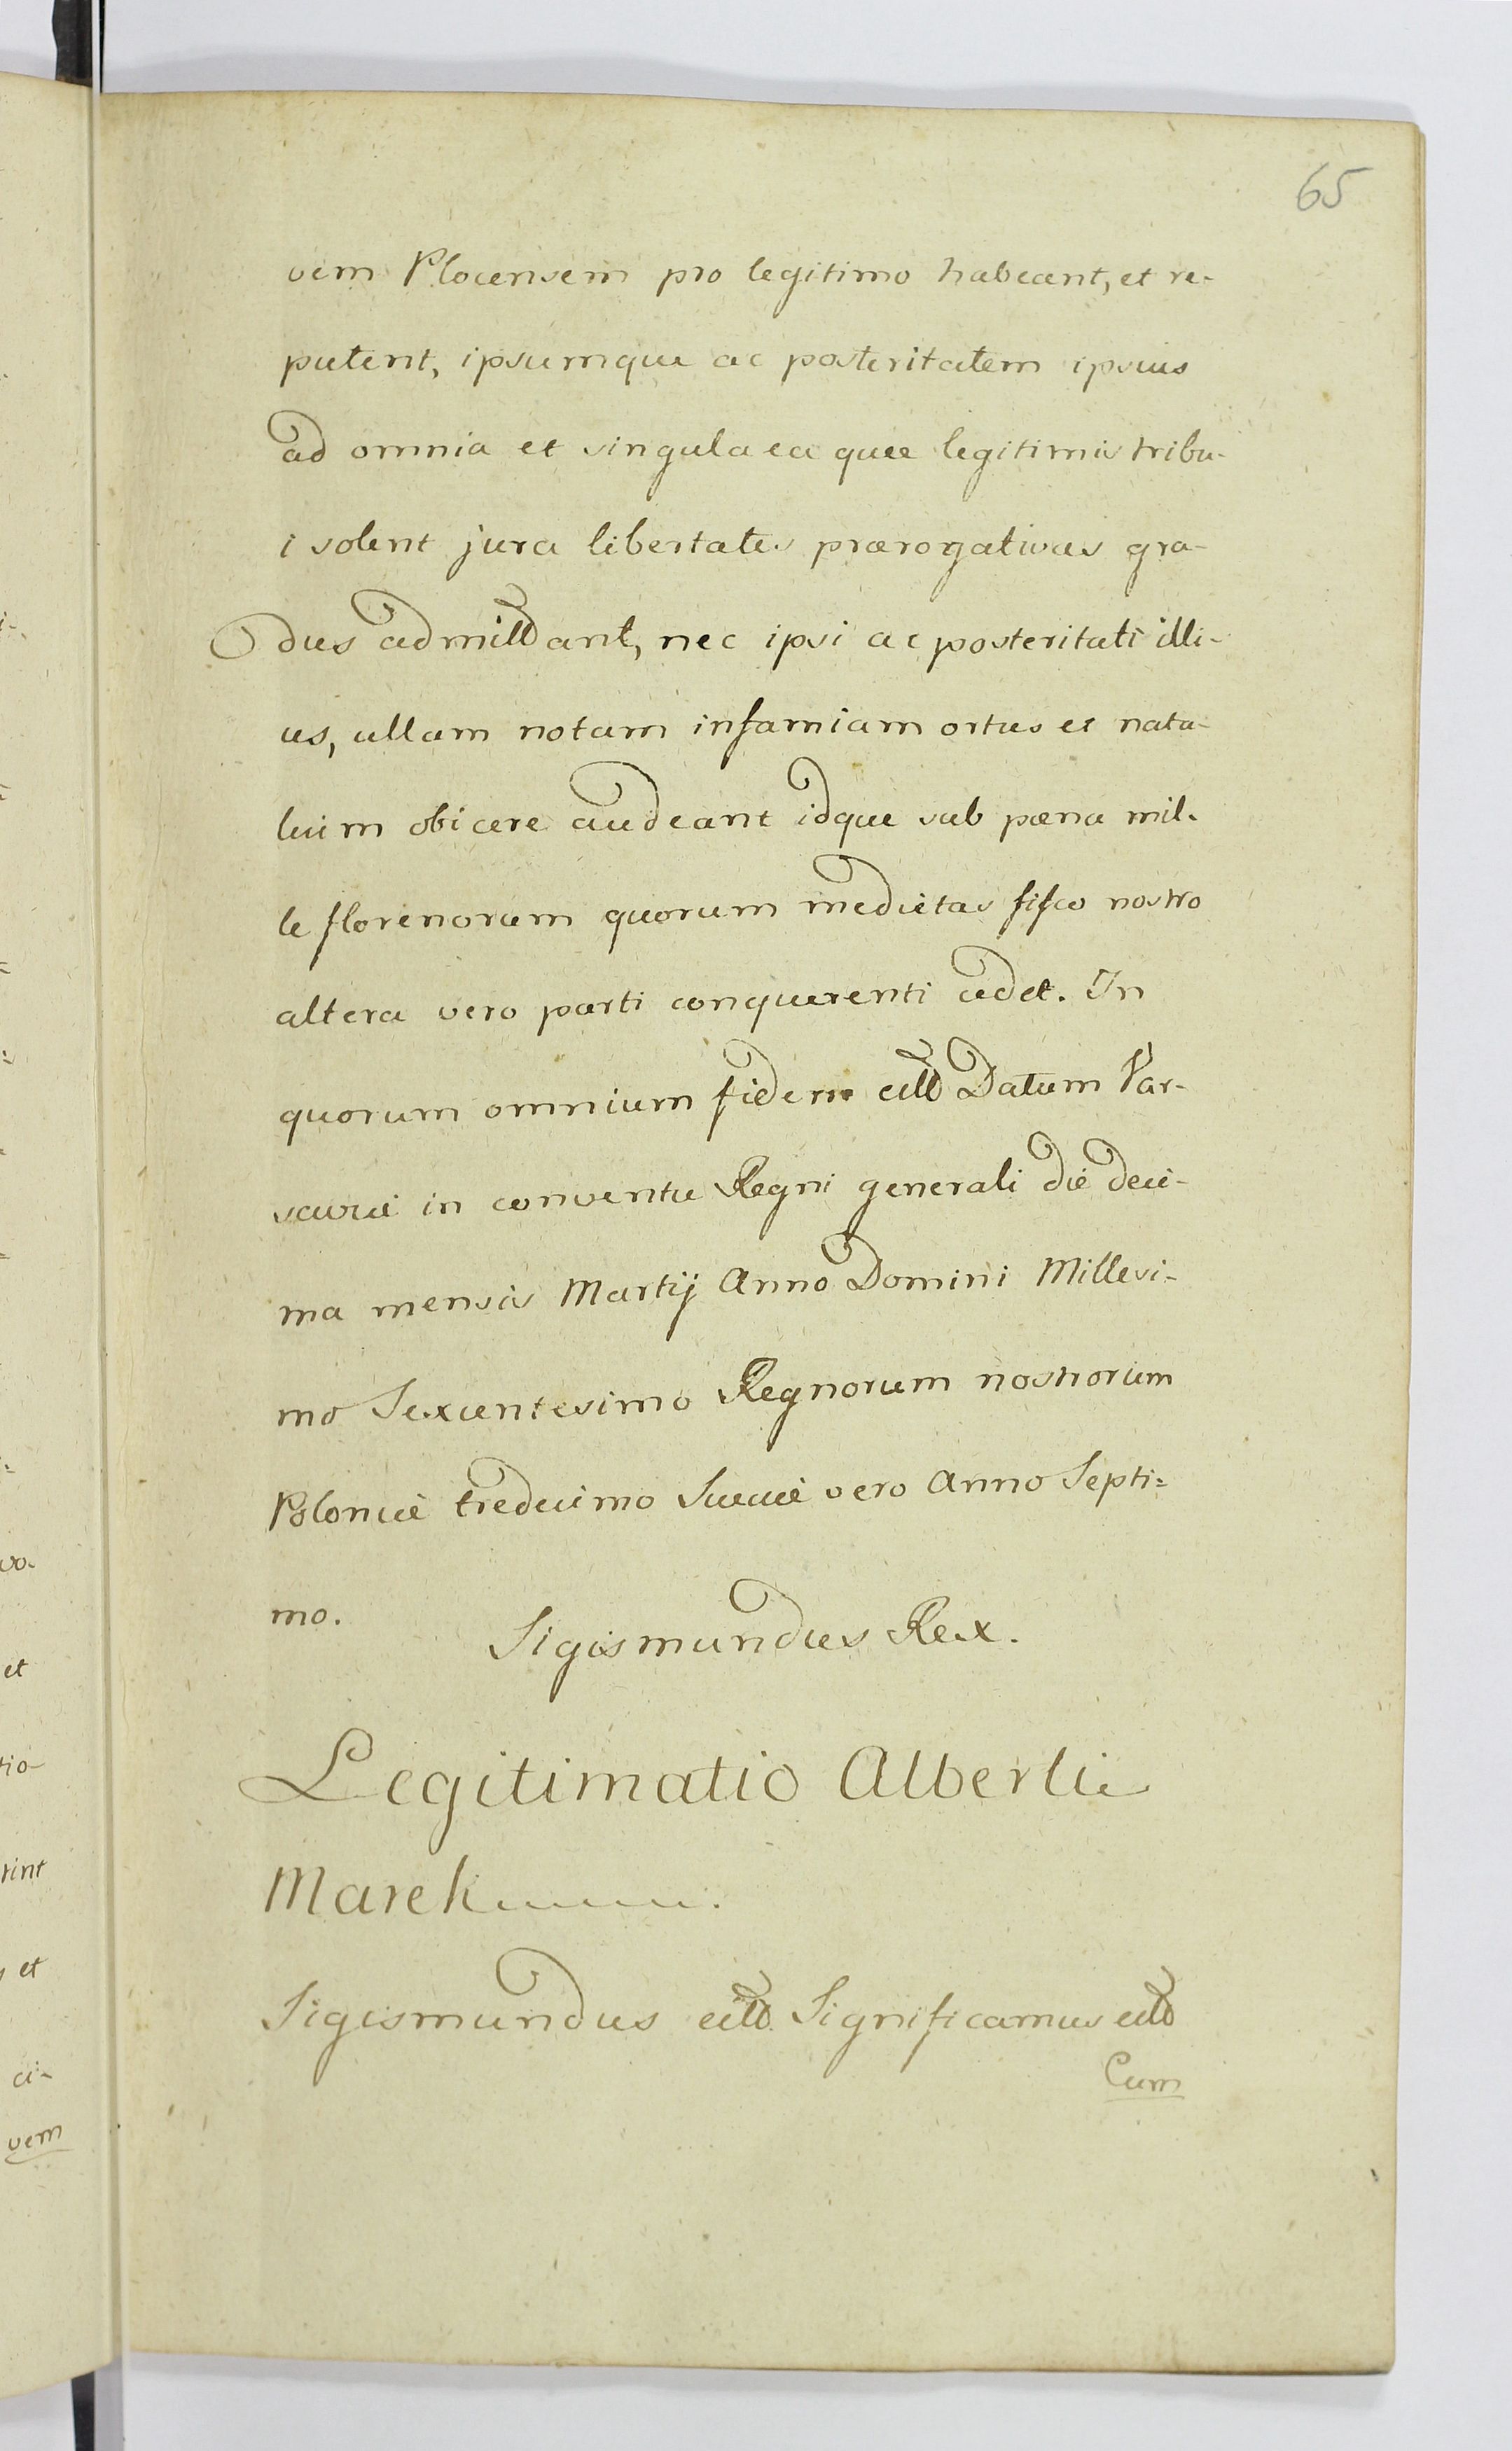 65
vem Plocensem pro legitimo habeant, et re-
putent, ipsumque ac posteritatem ipsius
ad omnia et singula ea quæ legitimis tribu-
i solent jura libertates prærogativas gra-
dus admittant, nec ipsi ac posteritati illi-
us, ullam notam infamiam ortus et nata-
lium obicere audeant idque sub pæna mil-
le florenorum quorum medietas fisco nostro
altera vero parti conquerenti cedet. In
quorum omnium fidem ettt Datum Var-
saviæ in conventu Regni generali die deci-
ma mensis Martij Anno Domini Millesi-
mo Sexcentesimo Regnorum nostrorum
Poloniæ tredecimo Sueciæ vero Anno Septi=
mo.
Sigismundus Rex.
Legitimatio Alberti
Marek
Sigismundus ettt. Significamus ettt
Cum
et
rint
et
vem